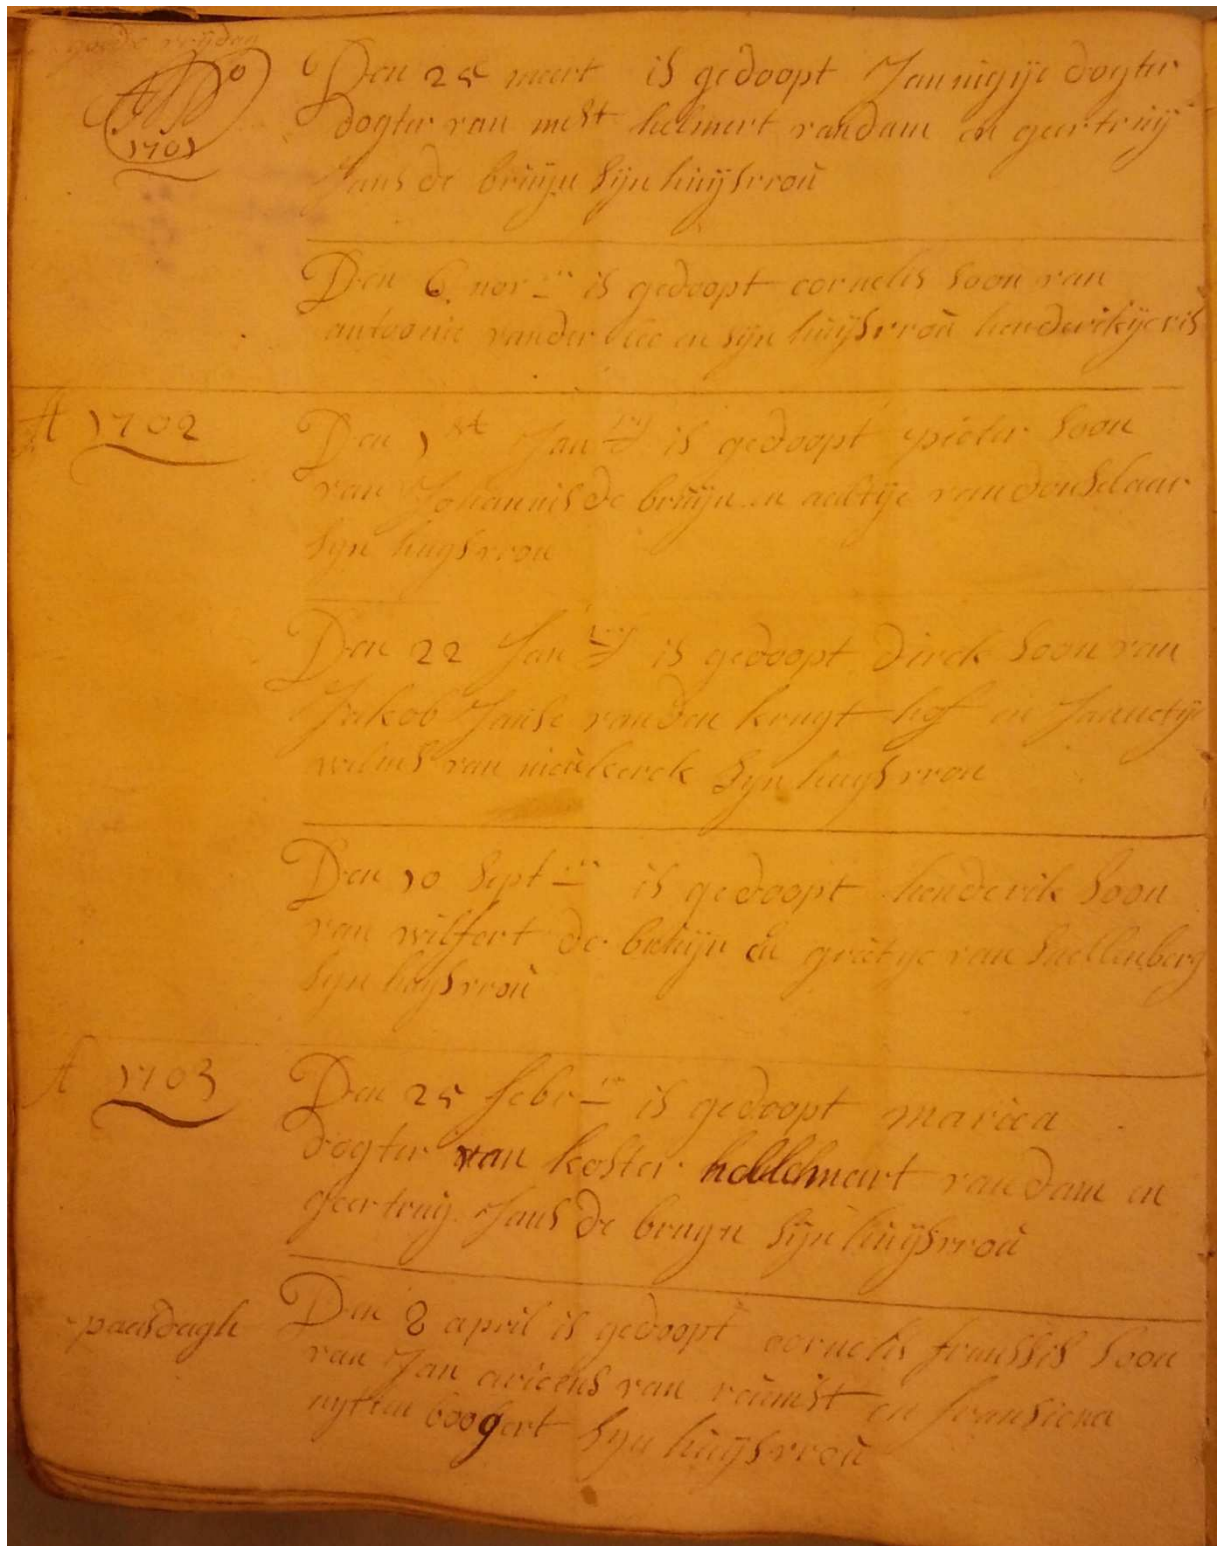 goede vrijdag
A°
1701
Den 25 meert is gedoopt Jannigije dogter
dogter van mest helmert van dam en geertruij
Jans de bruijn sijn huijsvrou
Den 6 nov is gedoopt cornelis soon van
antoonie vander lee en sijn huijsvrou henderickije
A 1702
Den 1st Jan is gedoopt pieter soon
van Johannis de bruijn en aeltije van donselaar
sijn huijsvrou
Den 22 Jan is gedoopt dirck soon van
Jakob Janse van den hof en Jannetije
wilms van nieukerck sijn huijsvrou
Den 10 sept is gedoopt henderick soon
van wilfert de bruijn en grietije van snellenberg
sijn huijsvrou
A 1703
Den 25 febr is gedoopt mariea
dogter van koster hellemert van dam en
geertruij Jans de bruijn sijn huijsvrou
paasdagh
Den 8 april is gedoopt cornelis fransis soon
van Jan arieens van en fransiena
uijtten boogert sijn huijsvrou